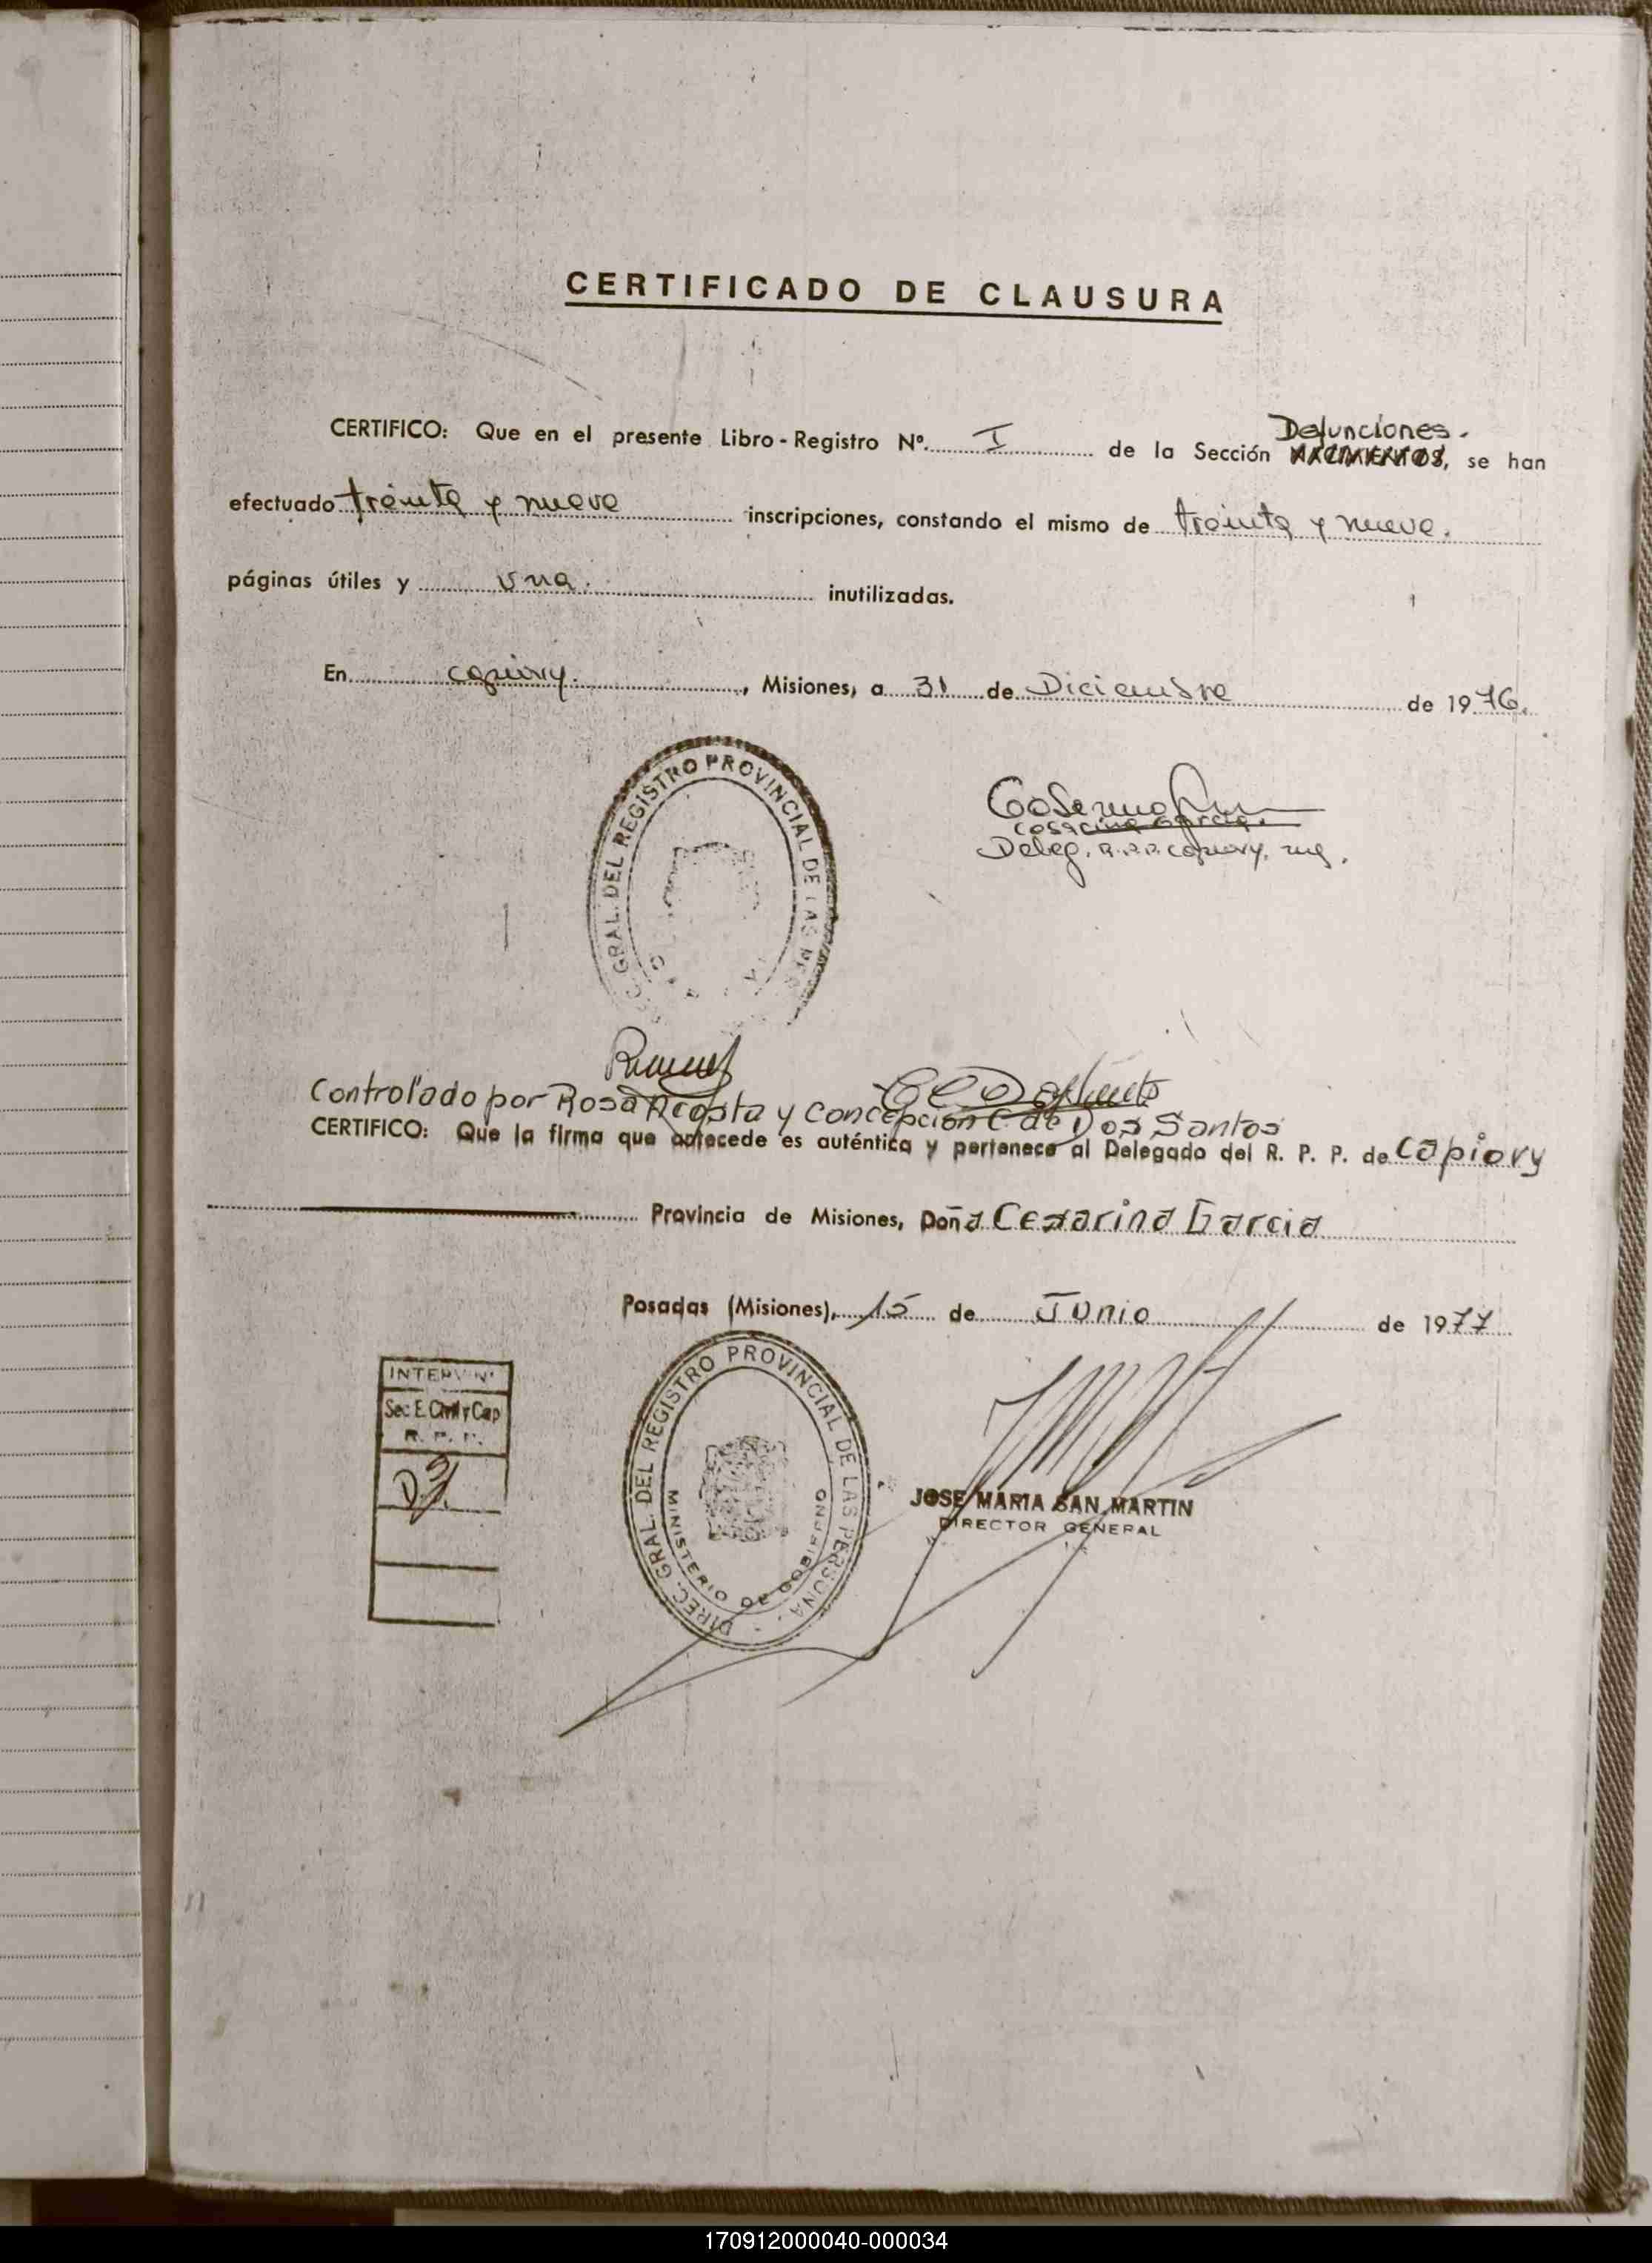 CERTIFICADO DE CLAUSURA
Defunciones.
CERTIFICO: Que en el presente Libro-Registro Nº. I de la Sección NACIMIENTOS, se han
efectuado treinta y nueve inscripciones, constando el mismo de treinta y nueve.
páginas útiles y una. inutilizadas.
En capiovy., Misiones, a 31 de Diciembre de 1976.
DIREC. GRAL. DEL REGISTRO PROVINCIAL DE LAS PER
Garcia.
Deleg. R.P.P. capiovy.
Controlado por Rosa Acosta y Concepción C de Dos Santos
CERTIFICO: Que la firma que antecede es auténtica y pertenece al Delegado del R. P. P. de Capiovy
Provincia de Misiones, Doña Cesarina Garcia
Posadas (Misiones), 15 de Junio de 1977
INTERVINO
Sec E. Civil y Cap
R. P. P.
DIREC. GRAL. DEL REGISTRO PROVINCIAL DE LAS PERSONA
MINISTERIO DE GOBIERNO
JOSE MARIA SAN MARTIN
DIRECTOR GENERAL
170912000040-000034